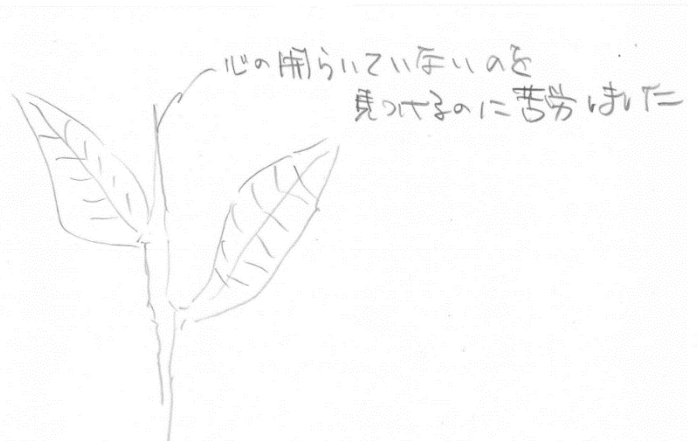 心の開らいていないのを
見つけるのに苦労しました